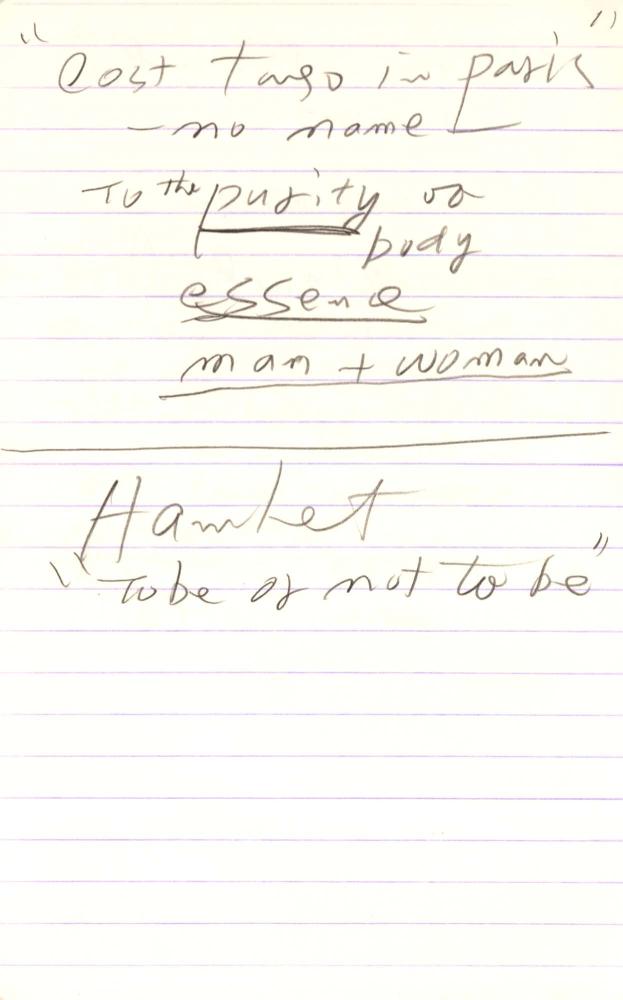 "Last Tango in Paris"
- no name
To the purity of
body
essence
man + woman
Hamlet
"To be or not to be"